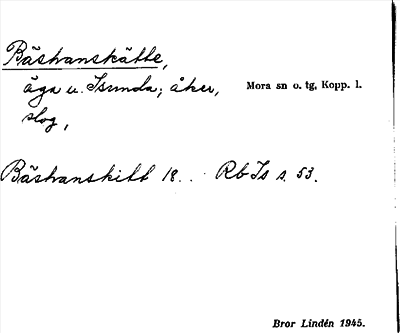 Båstvanskätte,
äga u. Isunda; åker, Mora sn o. tg, Kopp. l.
slog,
Båstvanskitt 18.. Rb Is s. 53.
Bror Lindén 1945.